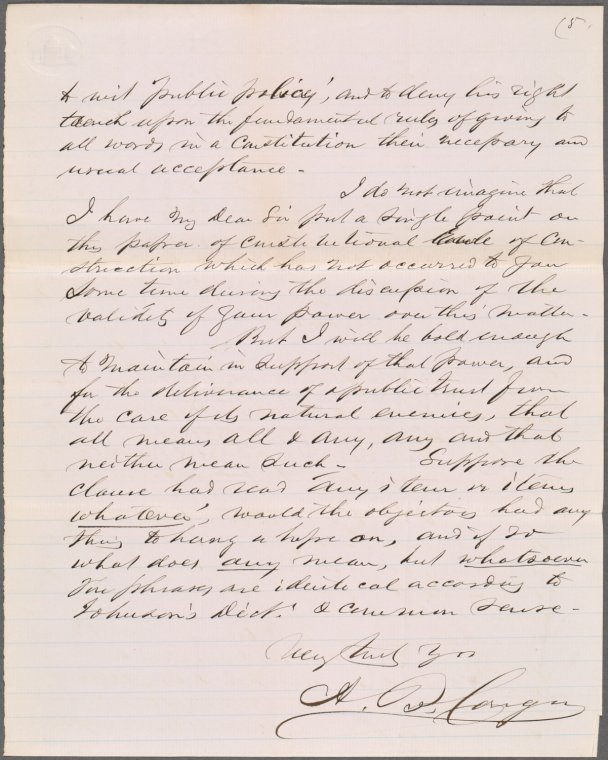 (5.
to wit 'public policy', and to deny his right
to trench upon the fundamental rules of giving to
all words in a Constitution their necessary and
usual acceptance -
I do not imagine that
I have my Dear Sir put a single point on
this paper of constitutional of con-
struction which has not occurred to you
some time during the discussion of the
validity of your power over this matter -
But I will be bold enough
to maintain in support of that power, and
for the deliverance of a public trust from
the care of its natural enemies, that
all means all & any, any and that
neither mean such - Suppose the
clause had read 'any item or items
whatever', would the objectors had any
thing to hang a hope on, and if so
what does any mean, but whatsoever
The phrases are identical according to
Johnson's Dict: & common sense -
Very truly Yrs
A. B. Conger